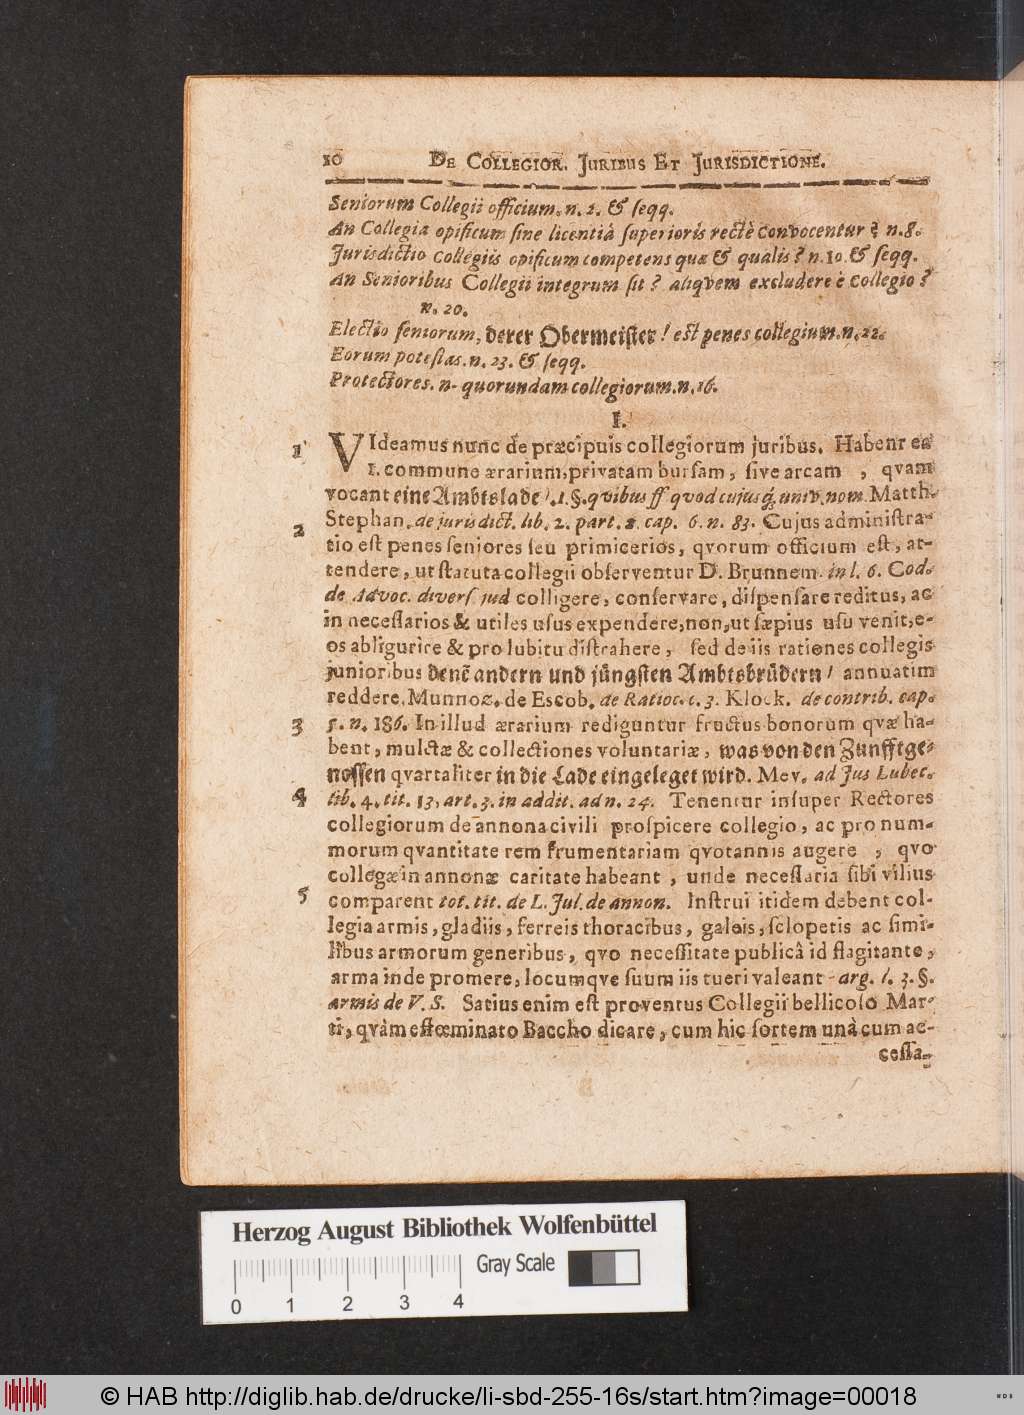 10 DE COLLEGIOR. JURIBUS ET JURISDICTIONE.
Seniorum Collegii officium. n. 2. & seqq.
An Collegia opificum sine licentiâ superioris rectè convocentur? n. 8.
Jurisdictio collegiis opificum competens quæ & qualis? n. 10. & seqq.
An Senioribus Collegii integrum sit? aliqvem excludere è collegio?
n. 20.
Electio seniorum, derer Obermeister! est penes collegium. n. 22.
Eorum potestas. n. 23. & seqq.
Protectores. n- quorundam collegiorum. n. 16.
I.
1 VIdeamus nunc de præcipuis collegiorum juribus. Habent ea
1. commune ærarium, privatam bursam, sive arcam, qvam
vocant eine Ambtslade l. 1. §. quibus ff quod cujusq́. univ. nom. Matth.
2 Stephan. de jurisdict. lib. 2. part. 2. cap. 6. n. 83. Cujus administra-
tio est penes seniores seu primicerios, qvorum officium est, at-
tendere, ut statuta collegii observentur D. Brunnem. in l. 6. Cod.
de Advoc. divers. jud colligere, conservare, dispensare reditus, ac
in necessarios & utiles usus expendere, non, ut sæpius usu venit, e-
os abligurire & pro lubitu distrahere, sed de iis rationes collegis
junioribus denẽ andern und jüngsten Ambtsbrüdern / annuatim
reddere. Munnoz. de Escob. de Ratioc. c. 3. Klock. de contrib. cap.
3 5. n. 186. In illud ærarium rediguntur fructus bonorum qvæ ha-
bent, mulctæ & collectiones voluntariæ, was von den Zunfftge-
nossen qvartaliter in die Lade eingeleget wird. Mev. ad Jus Lubec.
4 lib. 4. tit. 13, art. 3. in addit. ad n. 24. Tenentur insuper Rectores
collegiorum de annona civili prospicere collegio, ac pro num-
morum qvantitate rem frumentariam qvotannis augere, qvo
collegæ in annonæ caritate habeant, unde necessaria sibi vilius
5 comparent tot. tit. de L. Jul. de annon. Instrui itidem debent col-
legia armis, gladiis, ferreis thoracibus, galeis, sclopetis ac simi-
libus armorum generibus, qvo necessitate publicâ id flagitante,
arma inde promere, locumqve suum iis tueri valeant - arg. l. 3. §.
armis de V. S. Satius enim est proventus Collegii bellicoso Mar-
ti, qvàm effœminato Baccho dicare, cum hic sortem unà cum ac-
cessa-
Herzog August Bibliothek Wolfenbüttel
Gray Scale
0 1 2 3 4
© HAB http://diglib.hab.de/drucke/li-sbd-255-16s/start.htm?image=00018